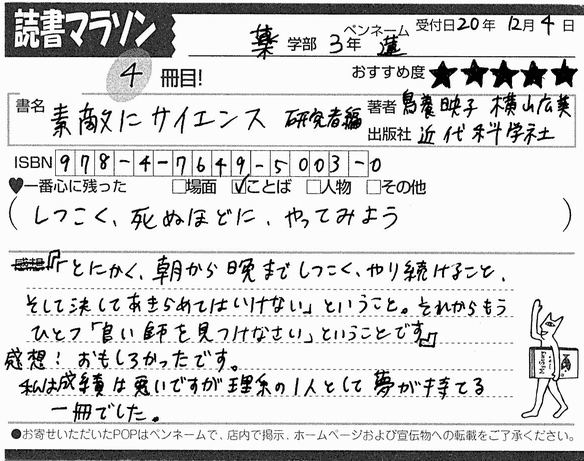 読書マラソン
薬 学部 3年 ペンネーム 蓮 受付日20年 12月 4日
4 冊目!
おすすめ度★★★★★
書名 素敵にサイエンス 研究者編
著者 鳥養映子 横山広美
出版社 近代科学社
ISBN 978-4-7649-5003-0
♥一番心に残った □場面 ☑ことば □人物 □その他
(しつこく、死ぬほどに、やってみよう)
感想『「とにかく、朝から晩までしつこく、やり続けること、
そして決してあきらめてはいけない」ということ。それからもう
ひとつ「良い師を見つけなさい」ということです』
感想! おもしろかったです。
私は成績は悪いですが理系の1人として夢が持てる
一冊でした。
●お寄せいただいたPOPはペンネームで、店内で掲示、ホームページおよび宣伝物への転載をご了承ください。